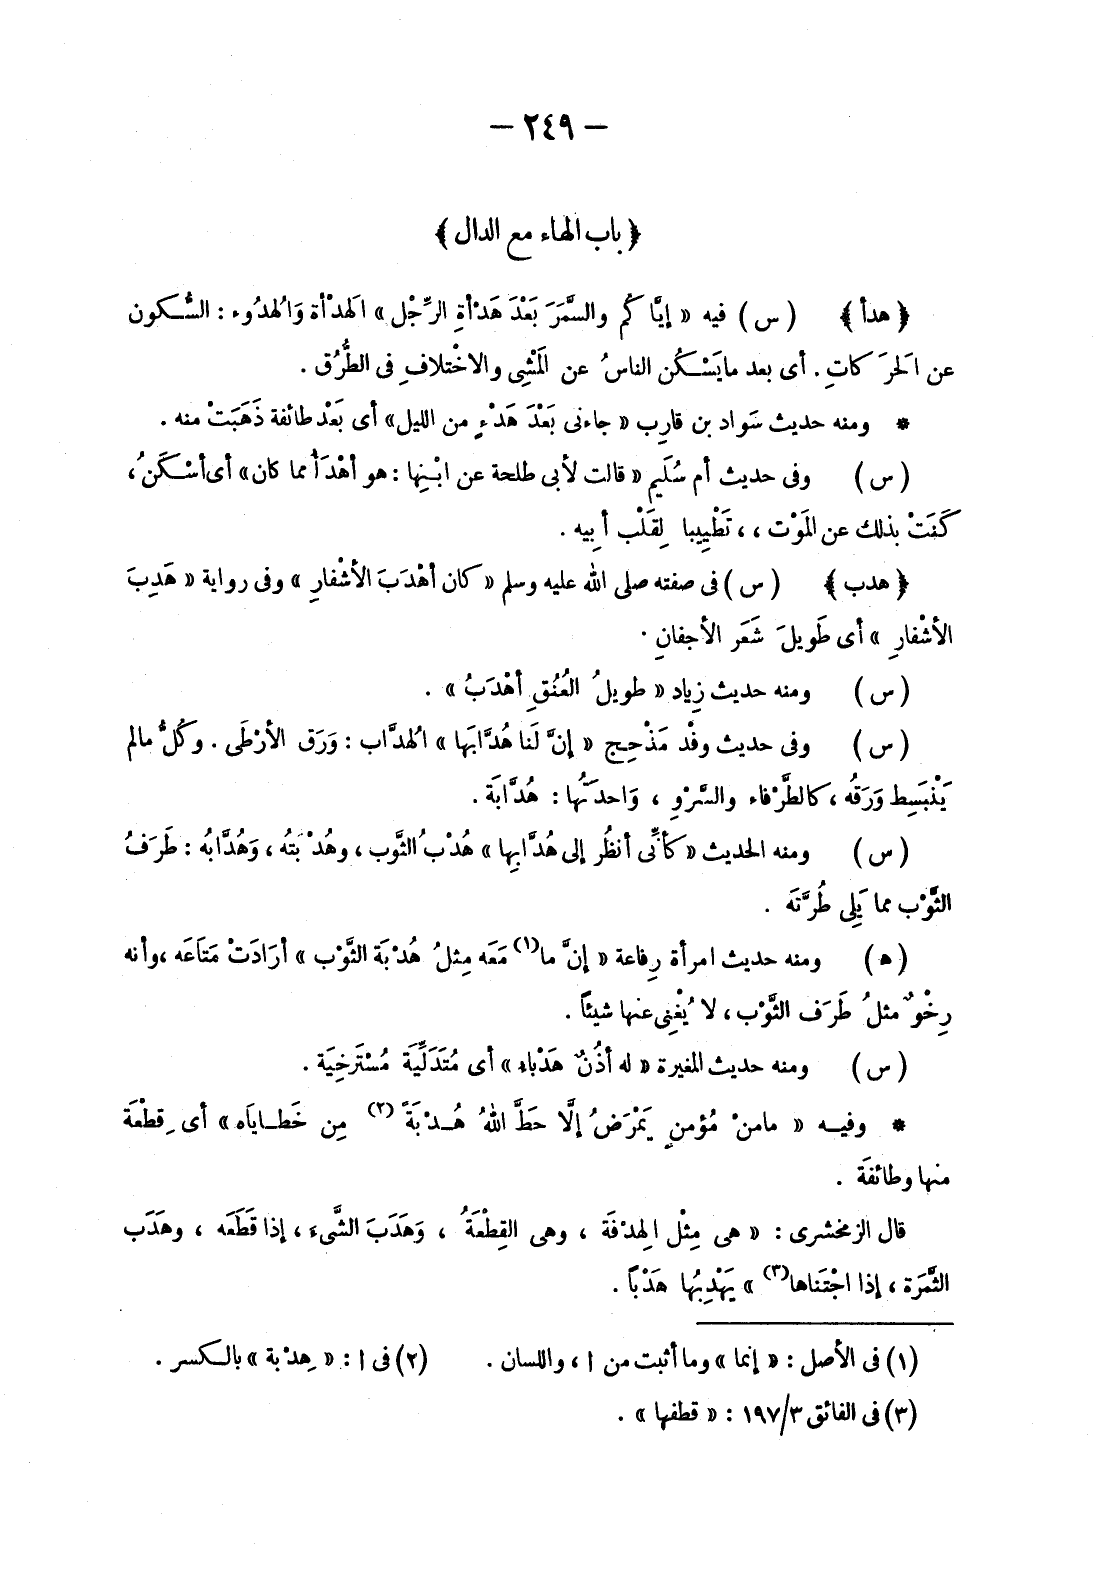 — ٢٤٩ —
﴿ باب الهاء مع الدال ﴾
﴿ هدأ ﴾ ( س ) فيه « إيَّاكُم والسَّمَرَ بَعْدَ هَدْأةِ الرِّجْل » الهَدْأة وَالهُدُوء : السُّكون
عن الحرَكاتِ . أى بعد مايَسْكُن الناسُ عن المَشْىِ والاخْتلافِ فى الطُّرُق .
* ومنه حديث سَواد بن قارِب « جاءنى بَعْدَ هَدْءٍ من الليل » أى بَعْد طائفة ذَهَبَتْ منه .
( س ) وفى حديث أم سُلَيم « قالت لأبى طلحة عن ابْنِها : هو أهْدَأُ مما كان » أى أسْكَنُ ،
كَنَتْ بذلك عن المَوْت ،، تَطْيِيبا لِقَلْب أبِيه .
﴿ هدب ﴾ ( س ) فى صفته صلى الله عليه وسلم « كان أهْدَبَ الأشْفارِ » وفى رواية « هَدِبَ
الأشْفارِ » أى طَوِيلَ شَعَر الأجفانِ .
( س ) ومنه حديث زِياد « طويلُ العُنُقِ أهْدَبُ » .
( س ) وفى حديث وفْد مَذْحِج « إنَّ لَنا هُدَّابَها » الهُدَّاب : وَرَق الأرْطَى . وكُلُّ مالم
يَنْبَسِط وَرَقُه ، كالطَّرْفاء والسَّرْوِ ، وَاحدَتُها : هُدَّابَة .
( س ) ومنه الحديث « كأنِّى أنظُر إلى هُدَّابِها » هُدْبُ الثَّوب ، وهُدْبَتُه ، وَهُدَّابُه : طَرَفُ
الثَّوْب مما يَلِى طُرَّتَه .
( ه ) ومنه حديث امرأة رِفاعة « إنَّ ما(١) مَعَه مِثلُ هُدْبَة الثَّوْب » أرَادَتْ مَتَاعَه ، وأنه
رِخْوٌ مثلُ طَرَف الثَّوْب ، لا يُغْنِى عنها شيئاً .
( س ) ومنه حديث المغيرة « له أذُنٌ هَدْباء » أى مُتَدَلِّيَة مُسْتَرخِيَة .
* وفيه « مامنْ مُؤمنٍ يَمْرَضُ إلَّا حَطَّ اللهُ هُدْبَةً(٢) مِن خَطاياَه » أى قِطعْة
منها وطائفَة .
قال الزمخشرى : « هى مِثْل الهِدْفَة ، وهى القِطْعَةُ ، وَهَدَبَ الشَّىءَ ، إذا قَطَعَه ، وهَدَب
الثَّمَرَة ، إذا اجْتَناها(٣) » يَهْدِبُها هَدْباً .
(١) فى الأصل : « إنما » وما أثبت من ا ، واللسان . (٢) فى ا : « هِدْبة » بالكسر .
(٣) فى الفائق ١٩٧/٣ : « قطفها » .